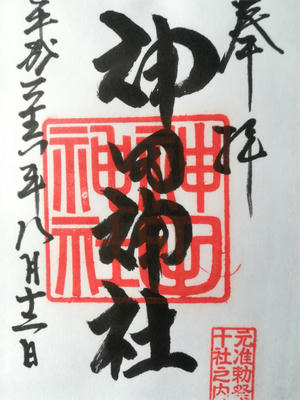 奉拝
神田神社
神田神社
元准勅祭
十社之内
平成二十六年八月日